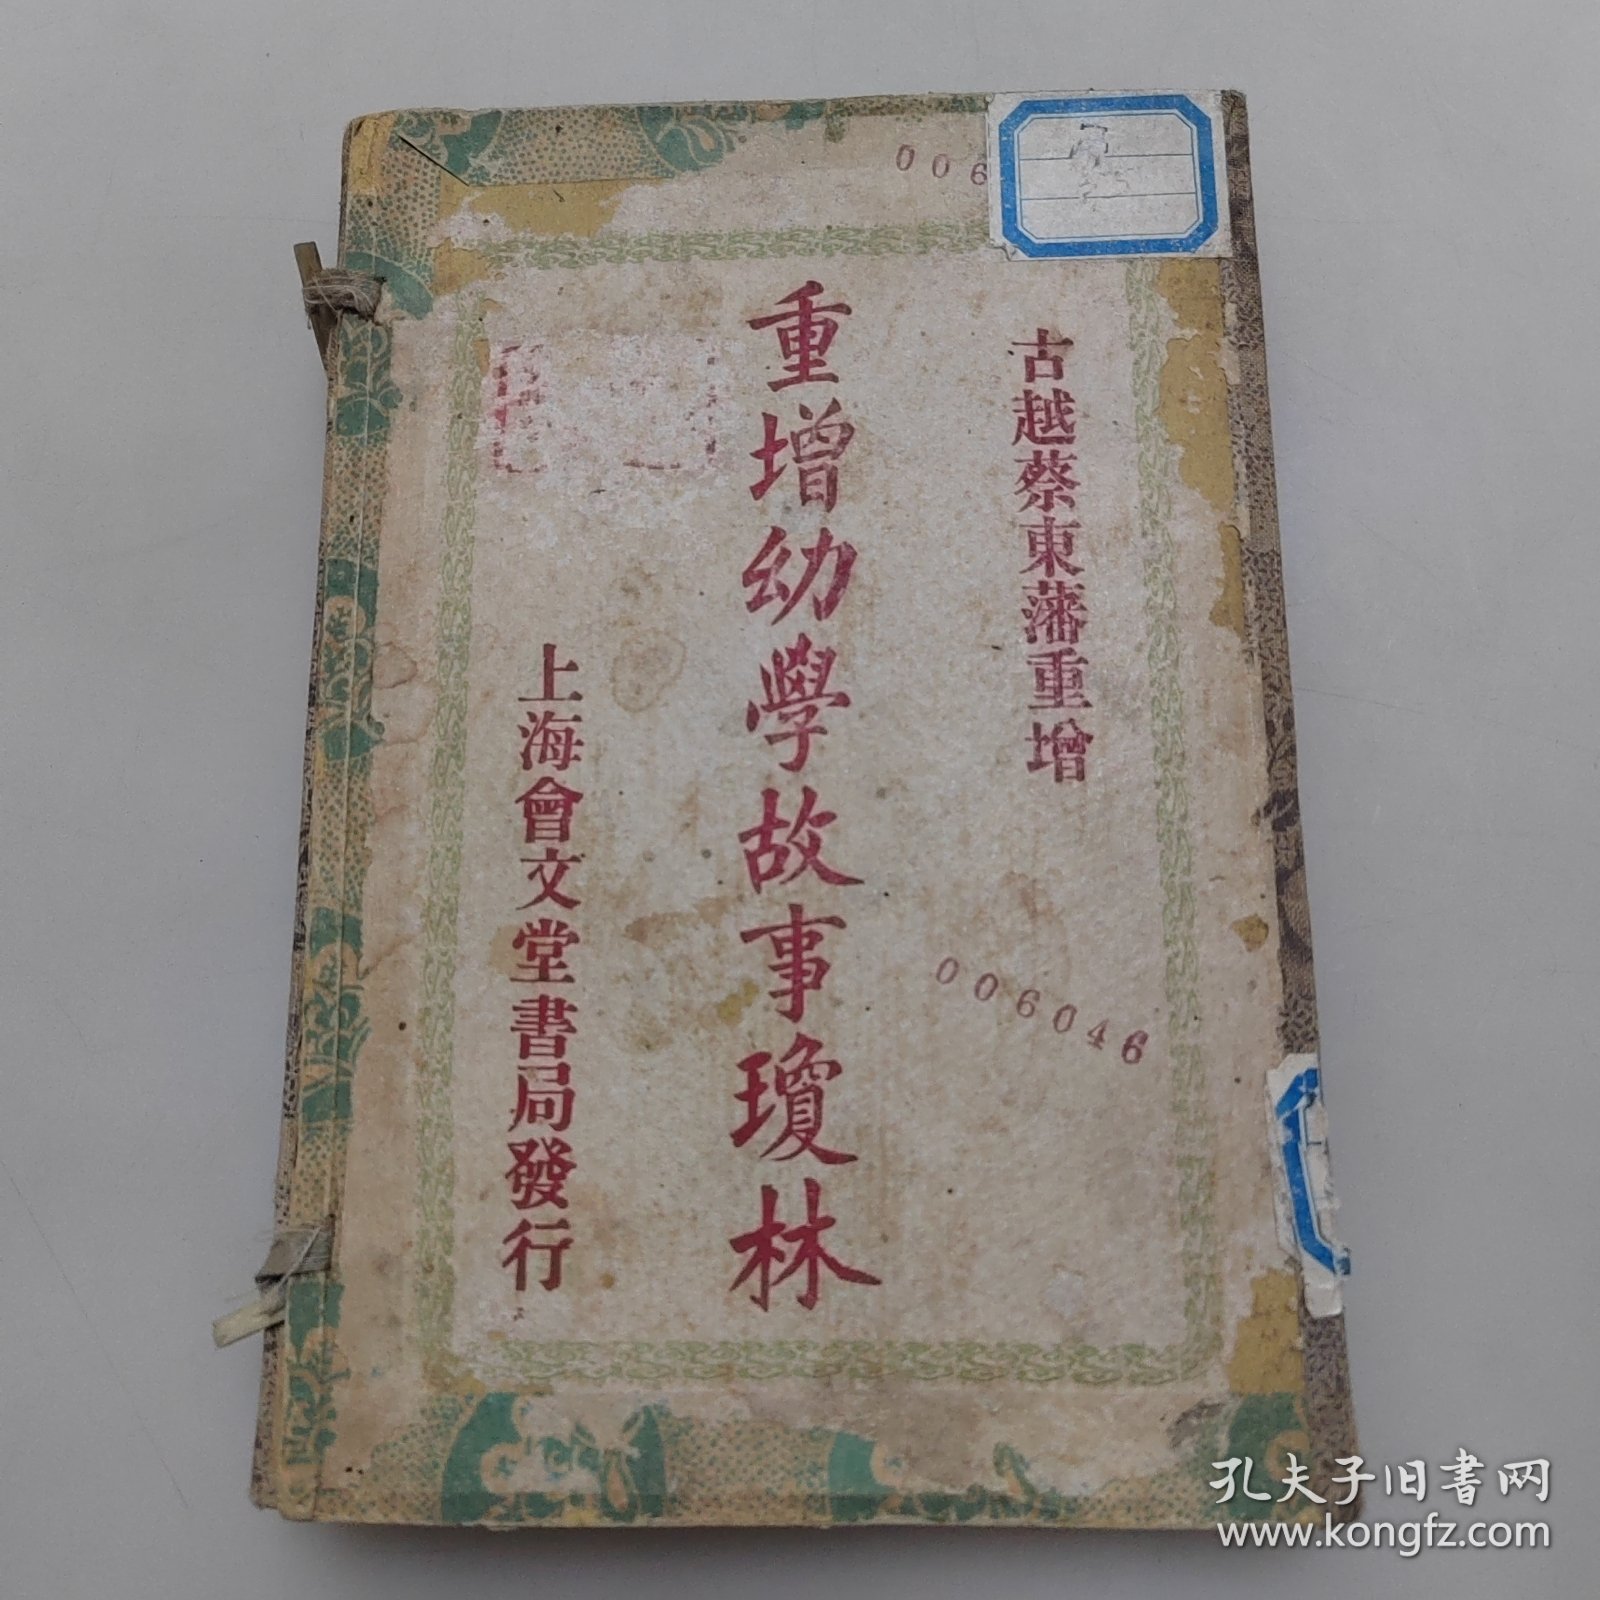 古越蔡東藩重增
重增幼學故事瓊林
上海會文堂書局發行
006
006046
孔夫子旧書网
www.kongfz.com